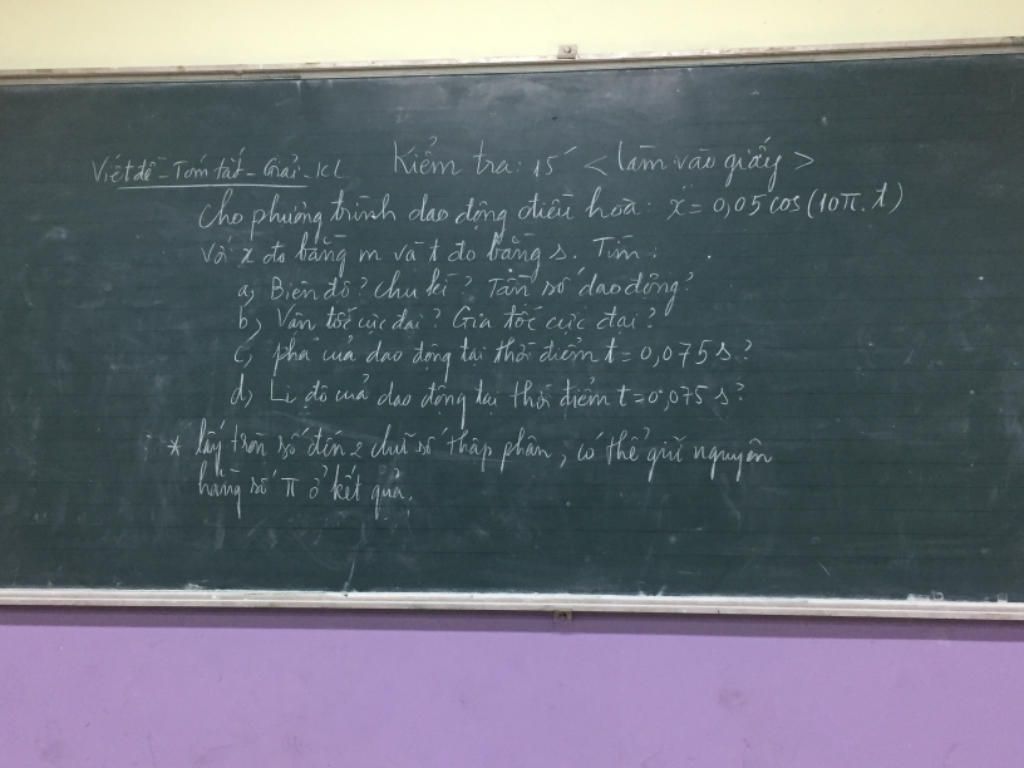 Viết đề - Tóm tắt - Giải - KL
Kiểm tra: 15' < làm vào giấy >
Cho phương trình dao động điều hòa: x = 0,05 cos (10π.t)
với x đo bằng m và t đo bằng s. Tìm:
a, Biên độ? Chu kì? Tần số dao động?
b, Vận tốc cực đại? Gia tốc cực đại?
c, pha của dao động tại thời điểm t = 0,075 s?
d, Li độ của dao động tại thời điểm t = 0,075 s?
* lấy tròn số đến 2 chữ số thập phân, có thể giữ nguyên
hằng số π ở kết quả.